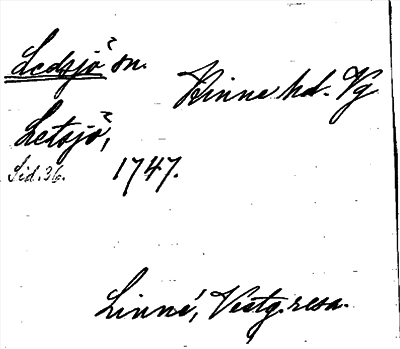 Ledsjö sn.
Kinne hd. Vg
Letsjö,
Sid. 36. 1747.
Linné, Vestg. resa.